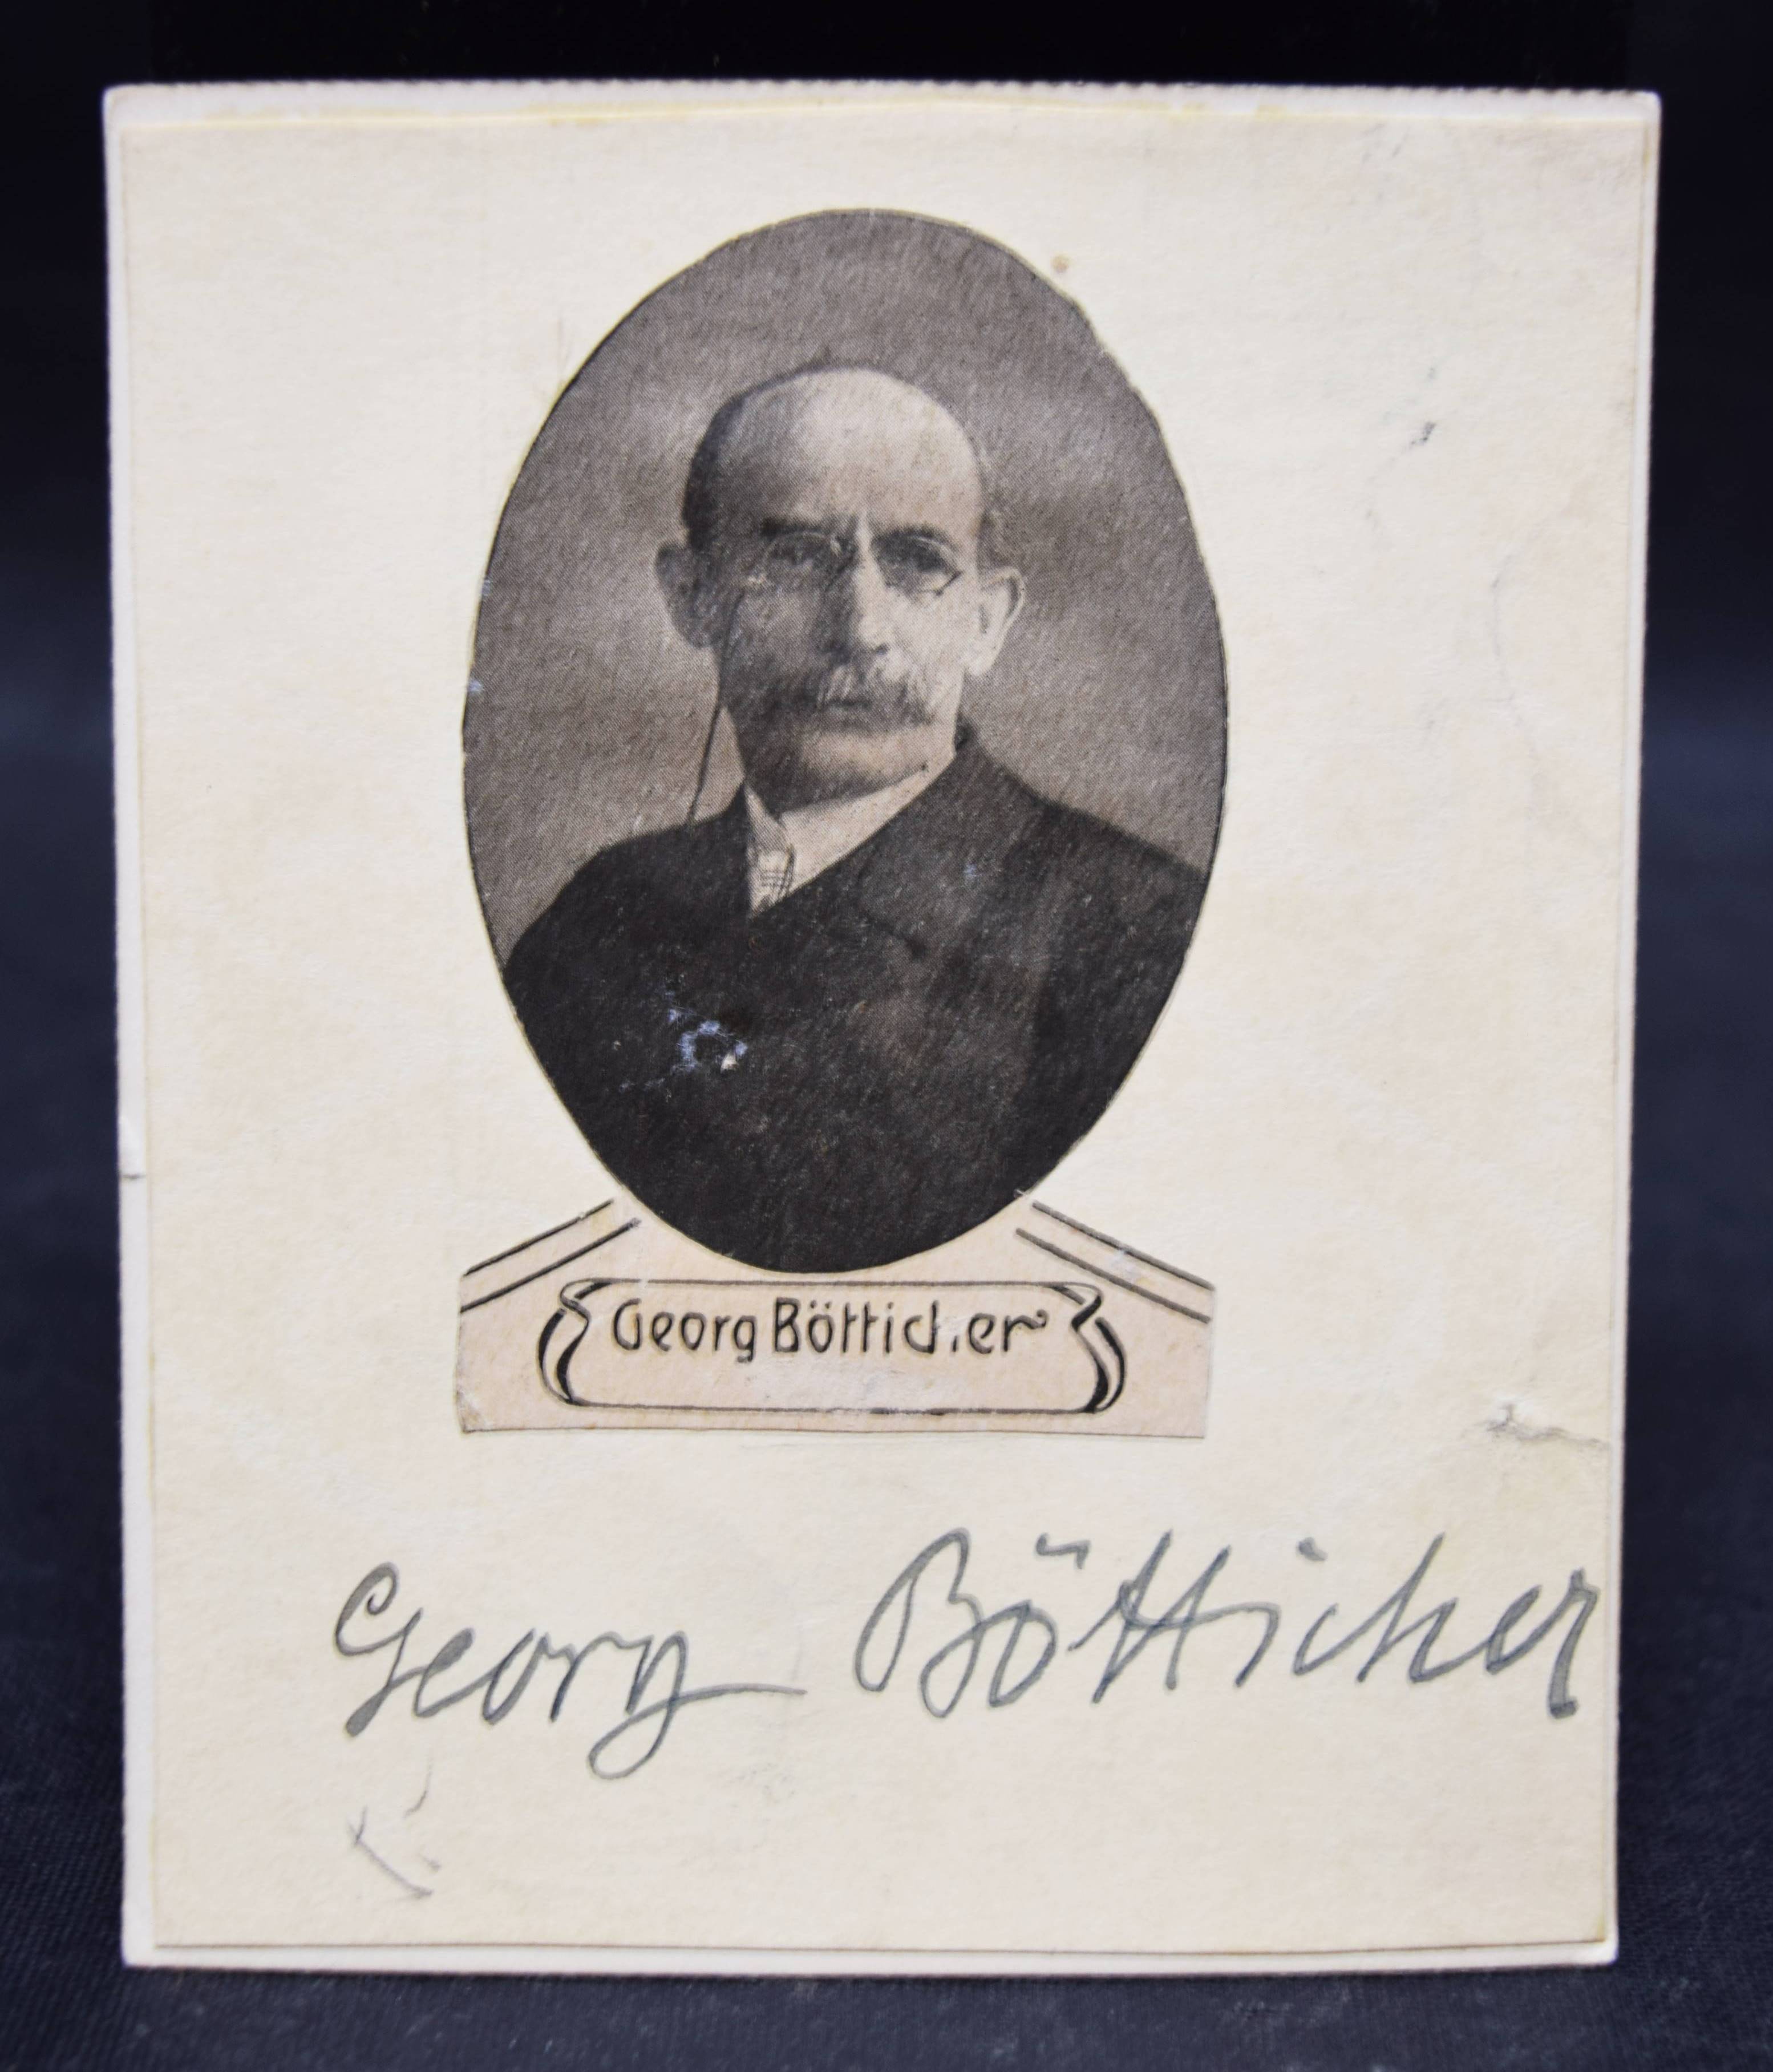 Georg Bötticher
Georg Bötticher